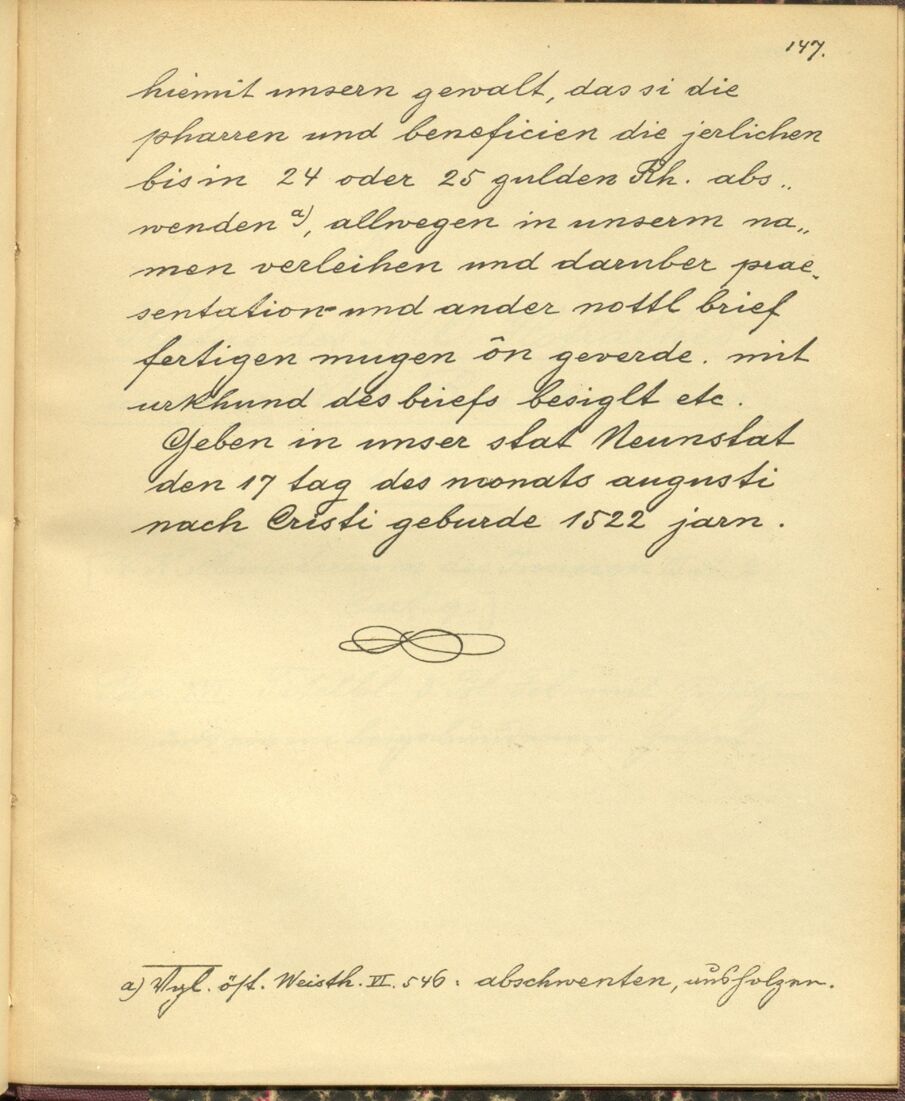 147.
hiemit unsern gewalt, das si die
pharren und beneficien die jerlichen
bis in 24 oder 25 gulden Rh. abs„
wenden a), allwegen in unserm na„
men verleihen und daruber prae„
sentation und ander nottl brief
fertigen mugen ôn geverde. mit
urkhund des briefs besiglt etc.
Geben in unser stat Neunstat
den 17 tag des monats augusti
nach Cristi geburde 1522 jarn.
a) Vgl. öst. Weisth. VI. 546: abschwenten, ausfolgen.